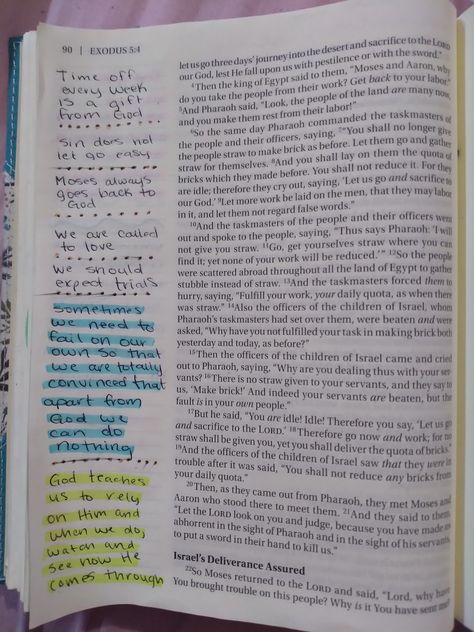 90 | EXODUS 5:4
Time off
every week
is a gift
from God
Sin does not
let go easy
Moses always
goes back to
God
We are called
to love
We should
expect trials
Sometimes
we need to
fail on our
own so that
we are totally
convinced that
apart from
God we
can do
nothing
God teaches
us to rely
on Him and
when we do,
watch and
see how He
comes through
let us go three days' journey into the desert and sacrifice to the LORD
our God, lest He fall upon us with pestilence or with the sword."
4Then the king of Egypt said to them, "Moses and Aaron, why
do you take the people from their work? Get back to your labor."
5And Pharaoh said, "Look, the people of the land are many now,
and you make them rest from their labor!"
6So the same day Pharaoh commanded the taskmasters of
the people and their officers, saying, 7"You shall no longer give
the people straw to make brick as before. Let them go and gather
straw for themselves. 8And you shall lay on them the quota of
bricks which they made before. You shall not reduce it. For they
are idle; therefore they cry out, saying, 'Let us go and sacrifice to
our God.' 9Let more work be laid on the men, that they may labor
in it, and let them not regard false words."
10And the taskmasters of the people and their officers went
out and spoke to the people, saying, "Thus says Pharaoh: 'I will
not give you straw. 11Go, get yourselves straw where you can
find it; yet none of your work will be reduced.'" 12So the people
were scattered abroad throughout all the land of Egypt to gather
stubble instead of straw. 13And the taskmasters forced them to
hurry, saying, "Fulfill your work, your daily quota, as when there
was straw." 14Also the officers of the children of Israel, whom
Pharaoh's taskmasters had set over them, were beaten and were
asked, "Why have you not fulfilled your task in making brick both
yesterday and today, as before?"
15Then the officers of the children of Israel came and cried
out to Pharaoh, saying, "Why are you dealing thus with your ser-
vants? 16There is no straw given to your servants, and they say to
us, 'Make brick!' And indeed your servants are beaten, but the
fault is in your own people."
17But he said, "You are idle! Idle! Therefore you say, 'Let us go
and sacrifice to the LORD.' 18Therefore go now and work; for no
straw shall be given you, yet you shall deliver the quota of bricks."
19And the officers of the children of Israel saw that they were in
trouble after it was said, "You shall not reduce any bricks from
your daily quota."
20Then, as they came out from Pharaoh, they met Moses and
Aaron who stood there to meet them. 21And they said to them,
"Let the LORD look on you and judge, because you have made us
abhorrent in the sight of Pharaoh and in the sight of his servants,
to put a sword in their hand to kill us."
Israel's Deliverance Assured
22So Moses returned to the LORD and said, "Lord, why have
You brought trouble on this people? Why is it You have sent me?